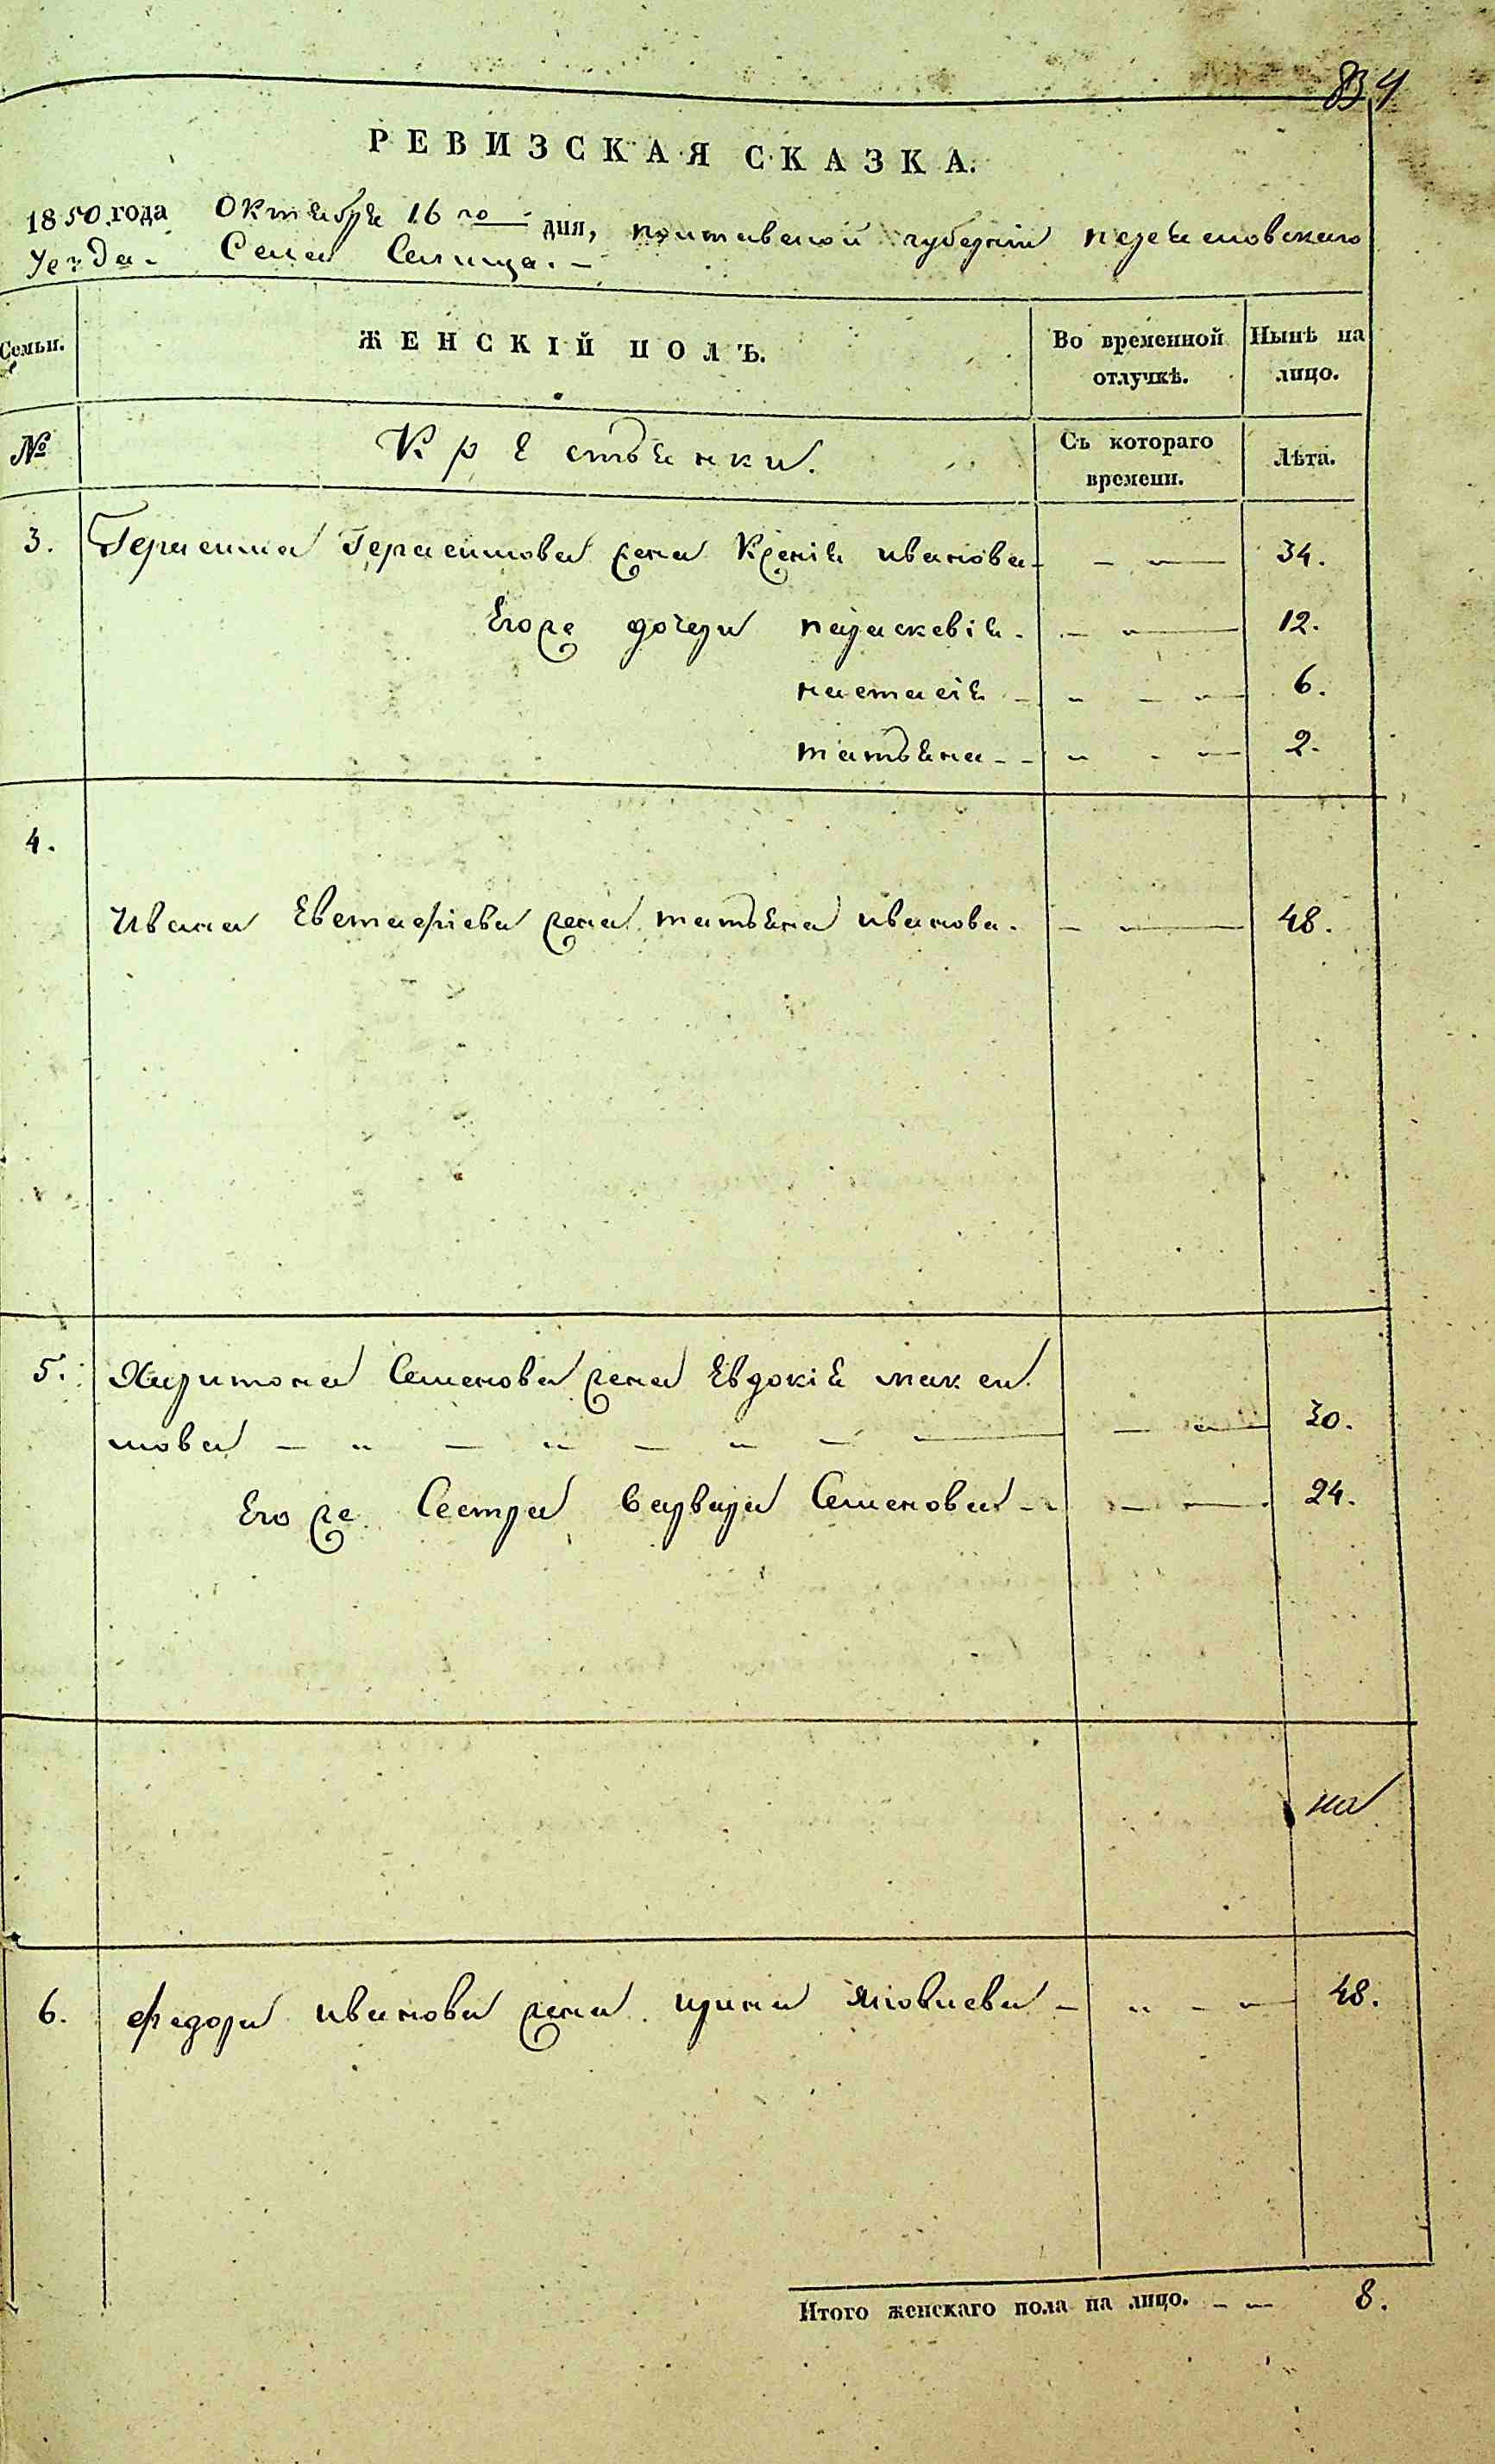 834
РЕВИЗСКАЯ СКАЗКА.
1850 года Октября 16 го дня, полтавской губерніи переяславскаго
Уезда. Села Селища.
Семьи. ЖЕНСКІЙ ПОЛЪ. Во временной отлучкѣ. Нынѣ на лицо.
№ Крестьянки. Съ котораго времени. Лѣта.
3. Герасима Герасимова жена Ксенія иванова 34.
Егоже дочери параскевія. 12.
настасія 6.
татьяна 2.
4.
Ивана Евстафіева жена татьяна иванова. 48.
5. Харитона Семенова жена Евдокія макси
мова 30.
Егоже Сестра варвара Семенова 24.
на
6. федора иванова жена ирина яковлева 48.
Итого женскаго пола на лицо. 8.